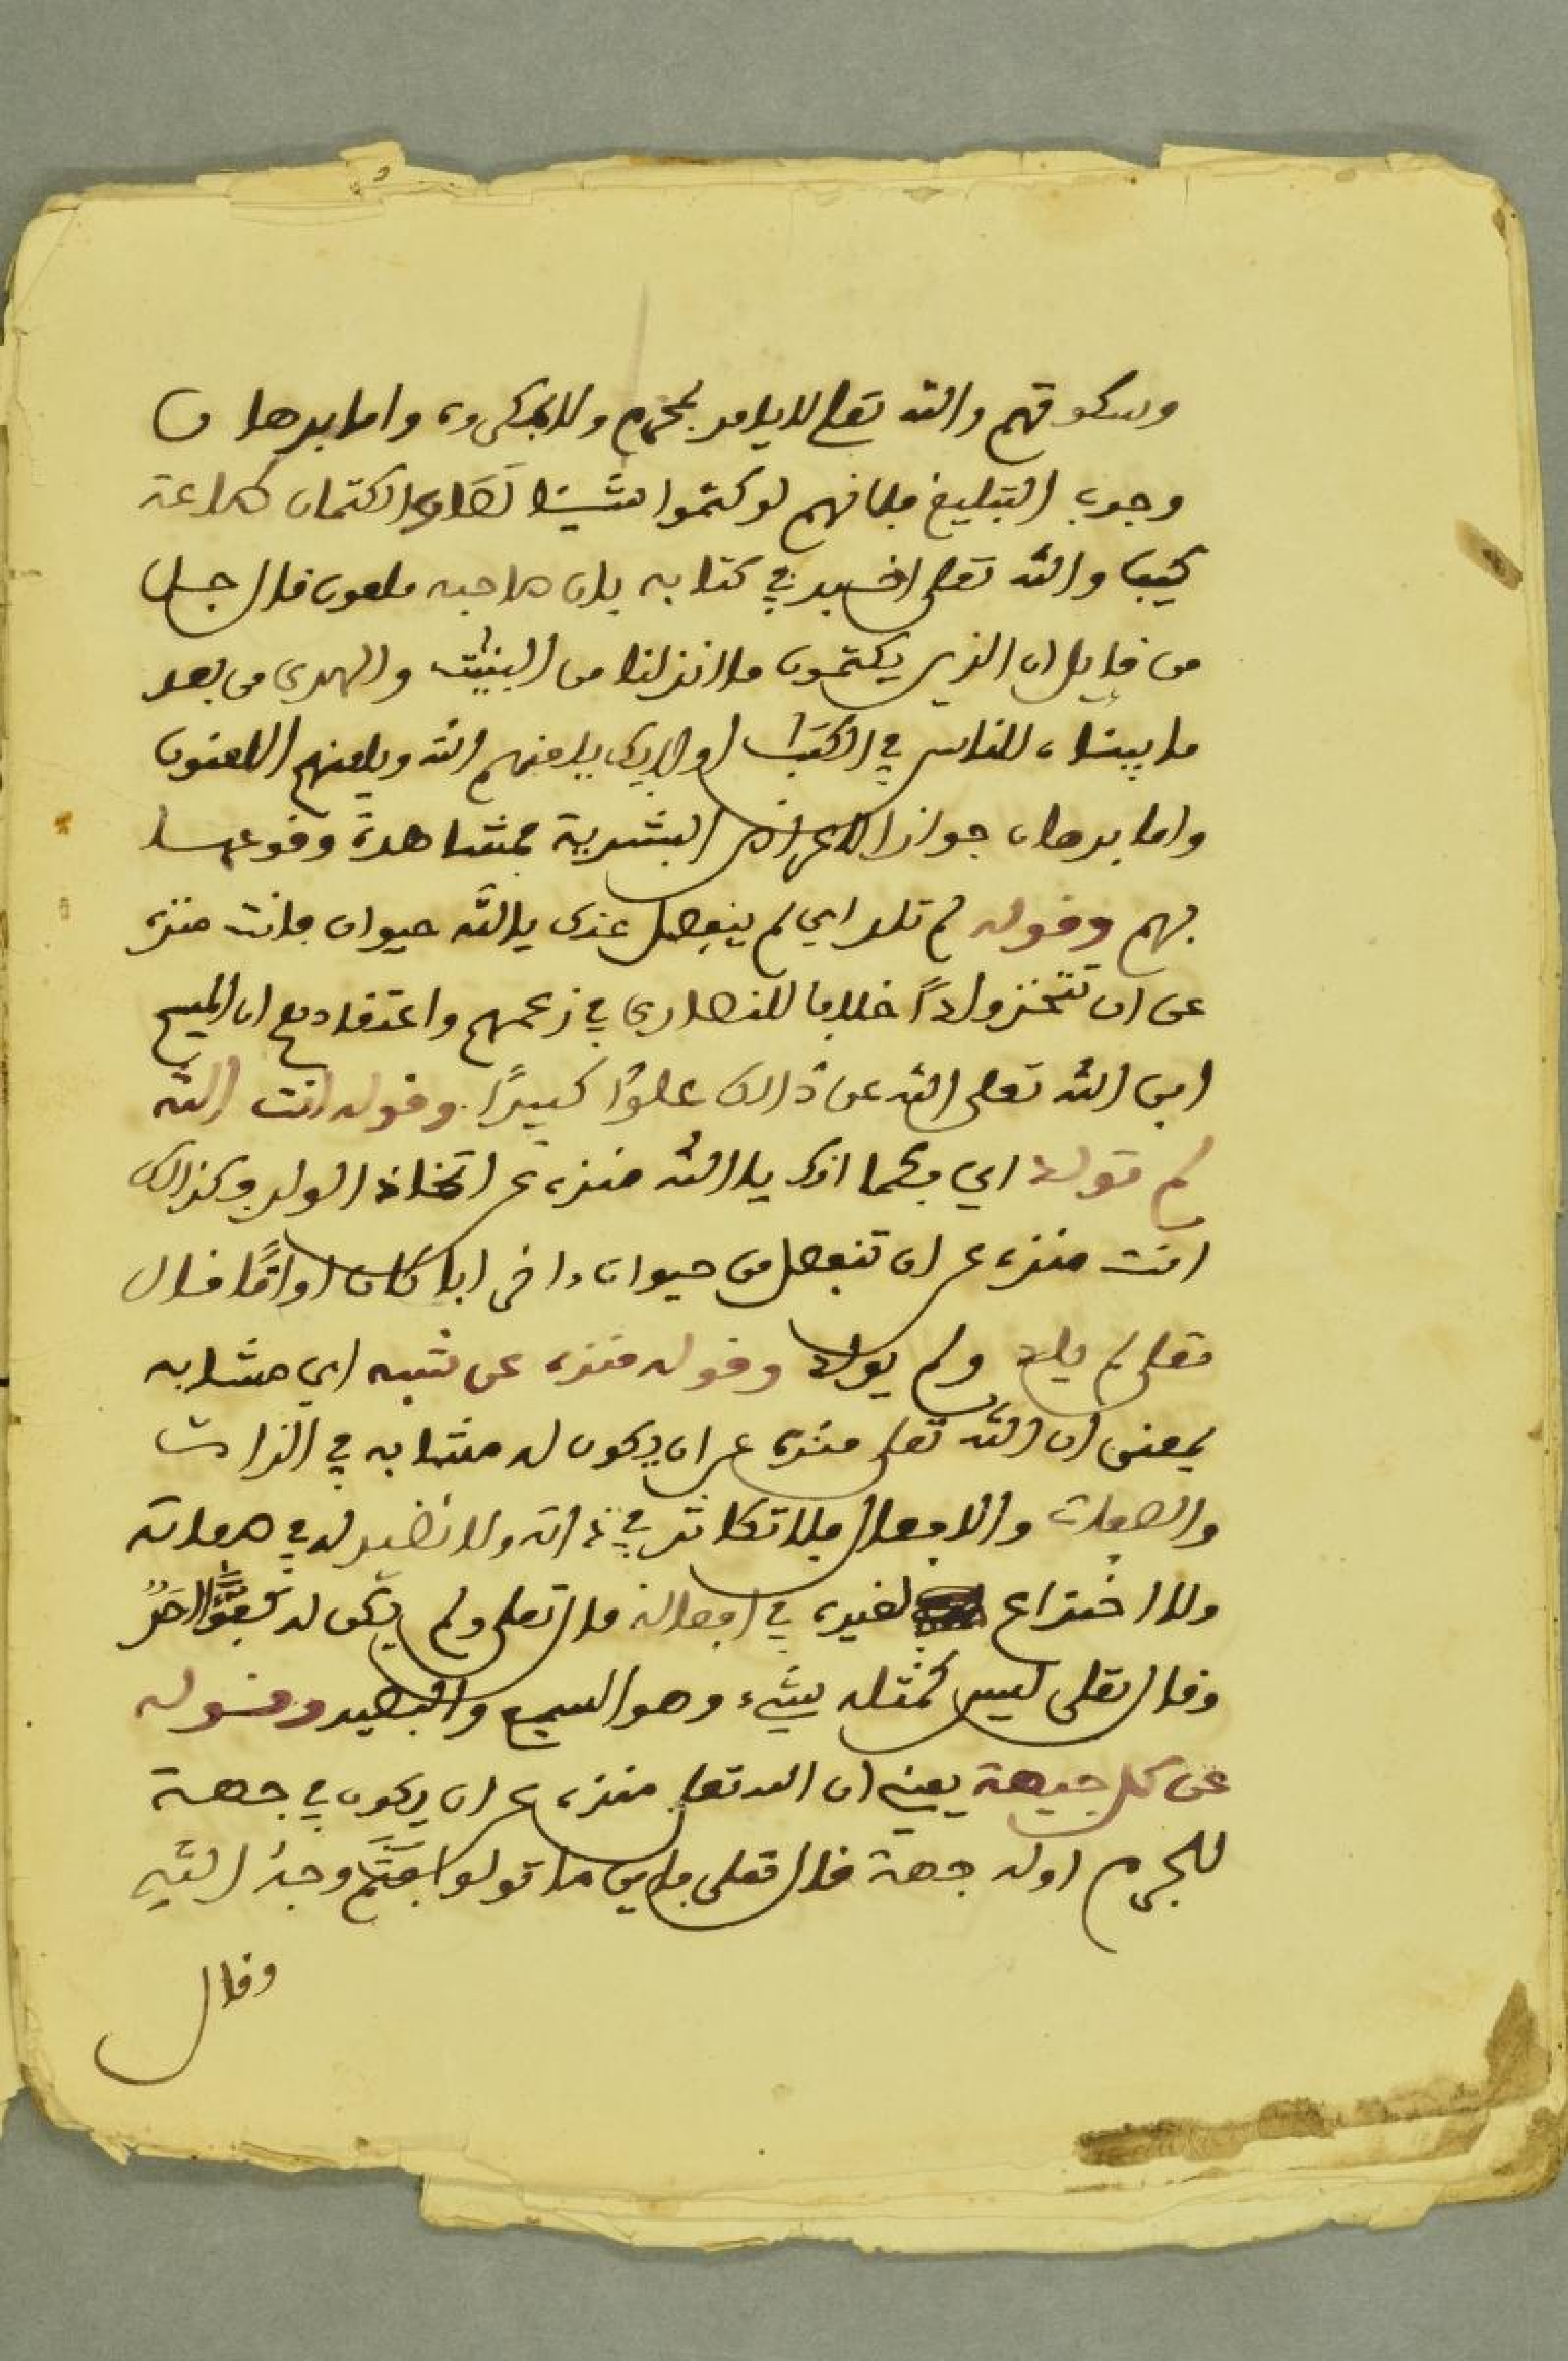 وسكوتهم والله تعلى لا يامر بمحرم ولا بمكروه واما برهان
وجوب التبليغ فلانهم لو كتموا شيئا لصار الكتمان طاعة
كيف والله تعلى اخبر في كتابه بان صاحبه ملعون قال جل
من قايل ان الذين يكتمون ما انزلنا من البينت والهدى من بعد
ما بيناه للناس في الكتب اولايك يلعنهم الله ويلعنهم اللعنون
واما برهان جواز الاعراض البشرية فمشاهدة وقوعها
بهم وقوله لم تلد اي لم ينفصل عنك يا الله حيوان فانت منزه
عن ان تتخذ ولدا خلافا للنصارى في زعمهم واعتقادهم ان المسيح
ابن الله تعلى الله عن ذالك علوا كبيرا وقوله انت الله
لم تولد اي فكما انك يا الله منزه عن اتخاذ الولد وكذالك
انت منزه عن ان تنفصل من حيوان اخر ابا كان او اما قال
تعلى لم يلد ولم يولد وقوله منزه عن شبه اي مشابه
بمعنى ان الله تعلى منزه عن ان يكون له مشابه في الذات
والصفات والافعال فلا تكاثر في ذاته ولا نظير له في صفاته
ولا اختراع لغيره في افعاله قال تعلى ولم يكن له كفؤا احد
وقال تعلى ليس كمثله شيء وهو السميع والبصير وقوله
عن كل جيهة يعني ان الله تعلى منزه عن ان يكون في جهة
للجرم اوله جهة قال تعلى فاين ما تولوا فثم وجه الله
وقال